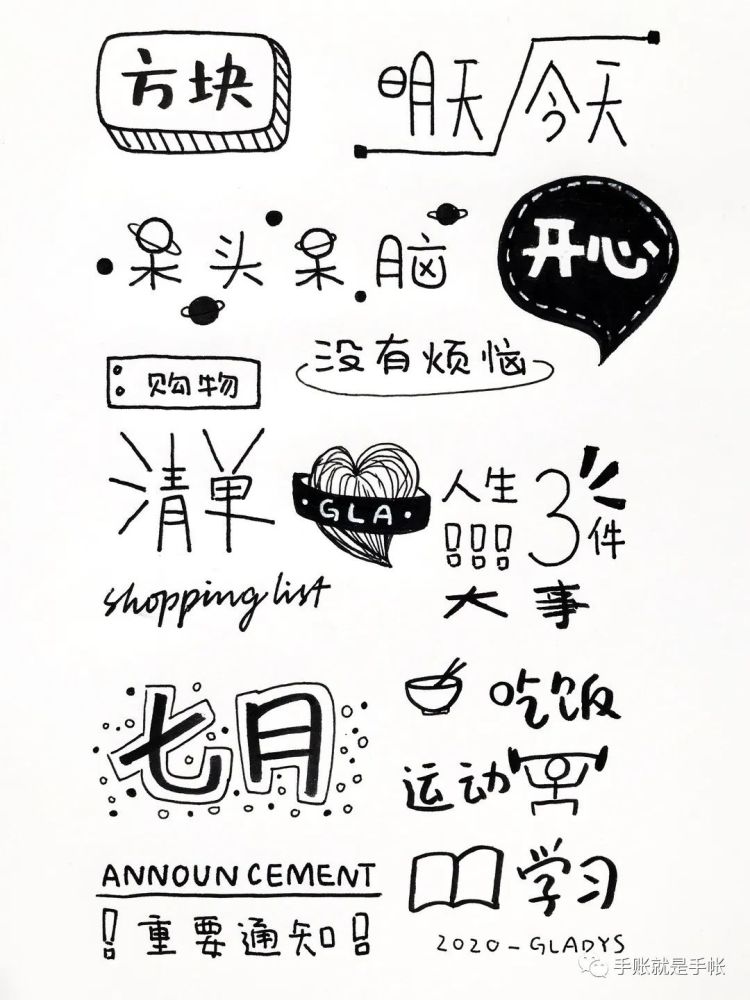 方块
明天 今天
呆头呆脑
开心
没有烦恼
购物
清单
shopping list
GLA
人生
!!! 3件
大事
七月
吃饭
运动
学习
ANNOUNCEMENT
!重要通知!
2020-GLADYS
手账就是手帐